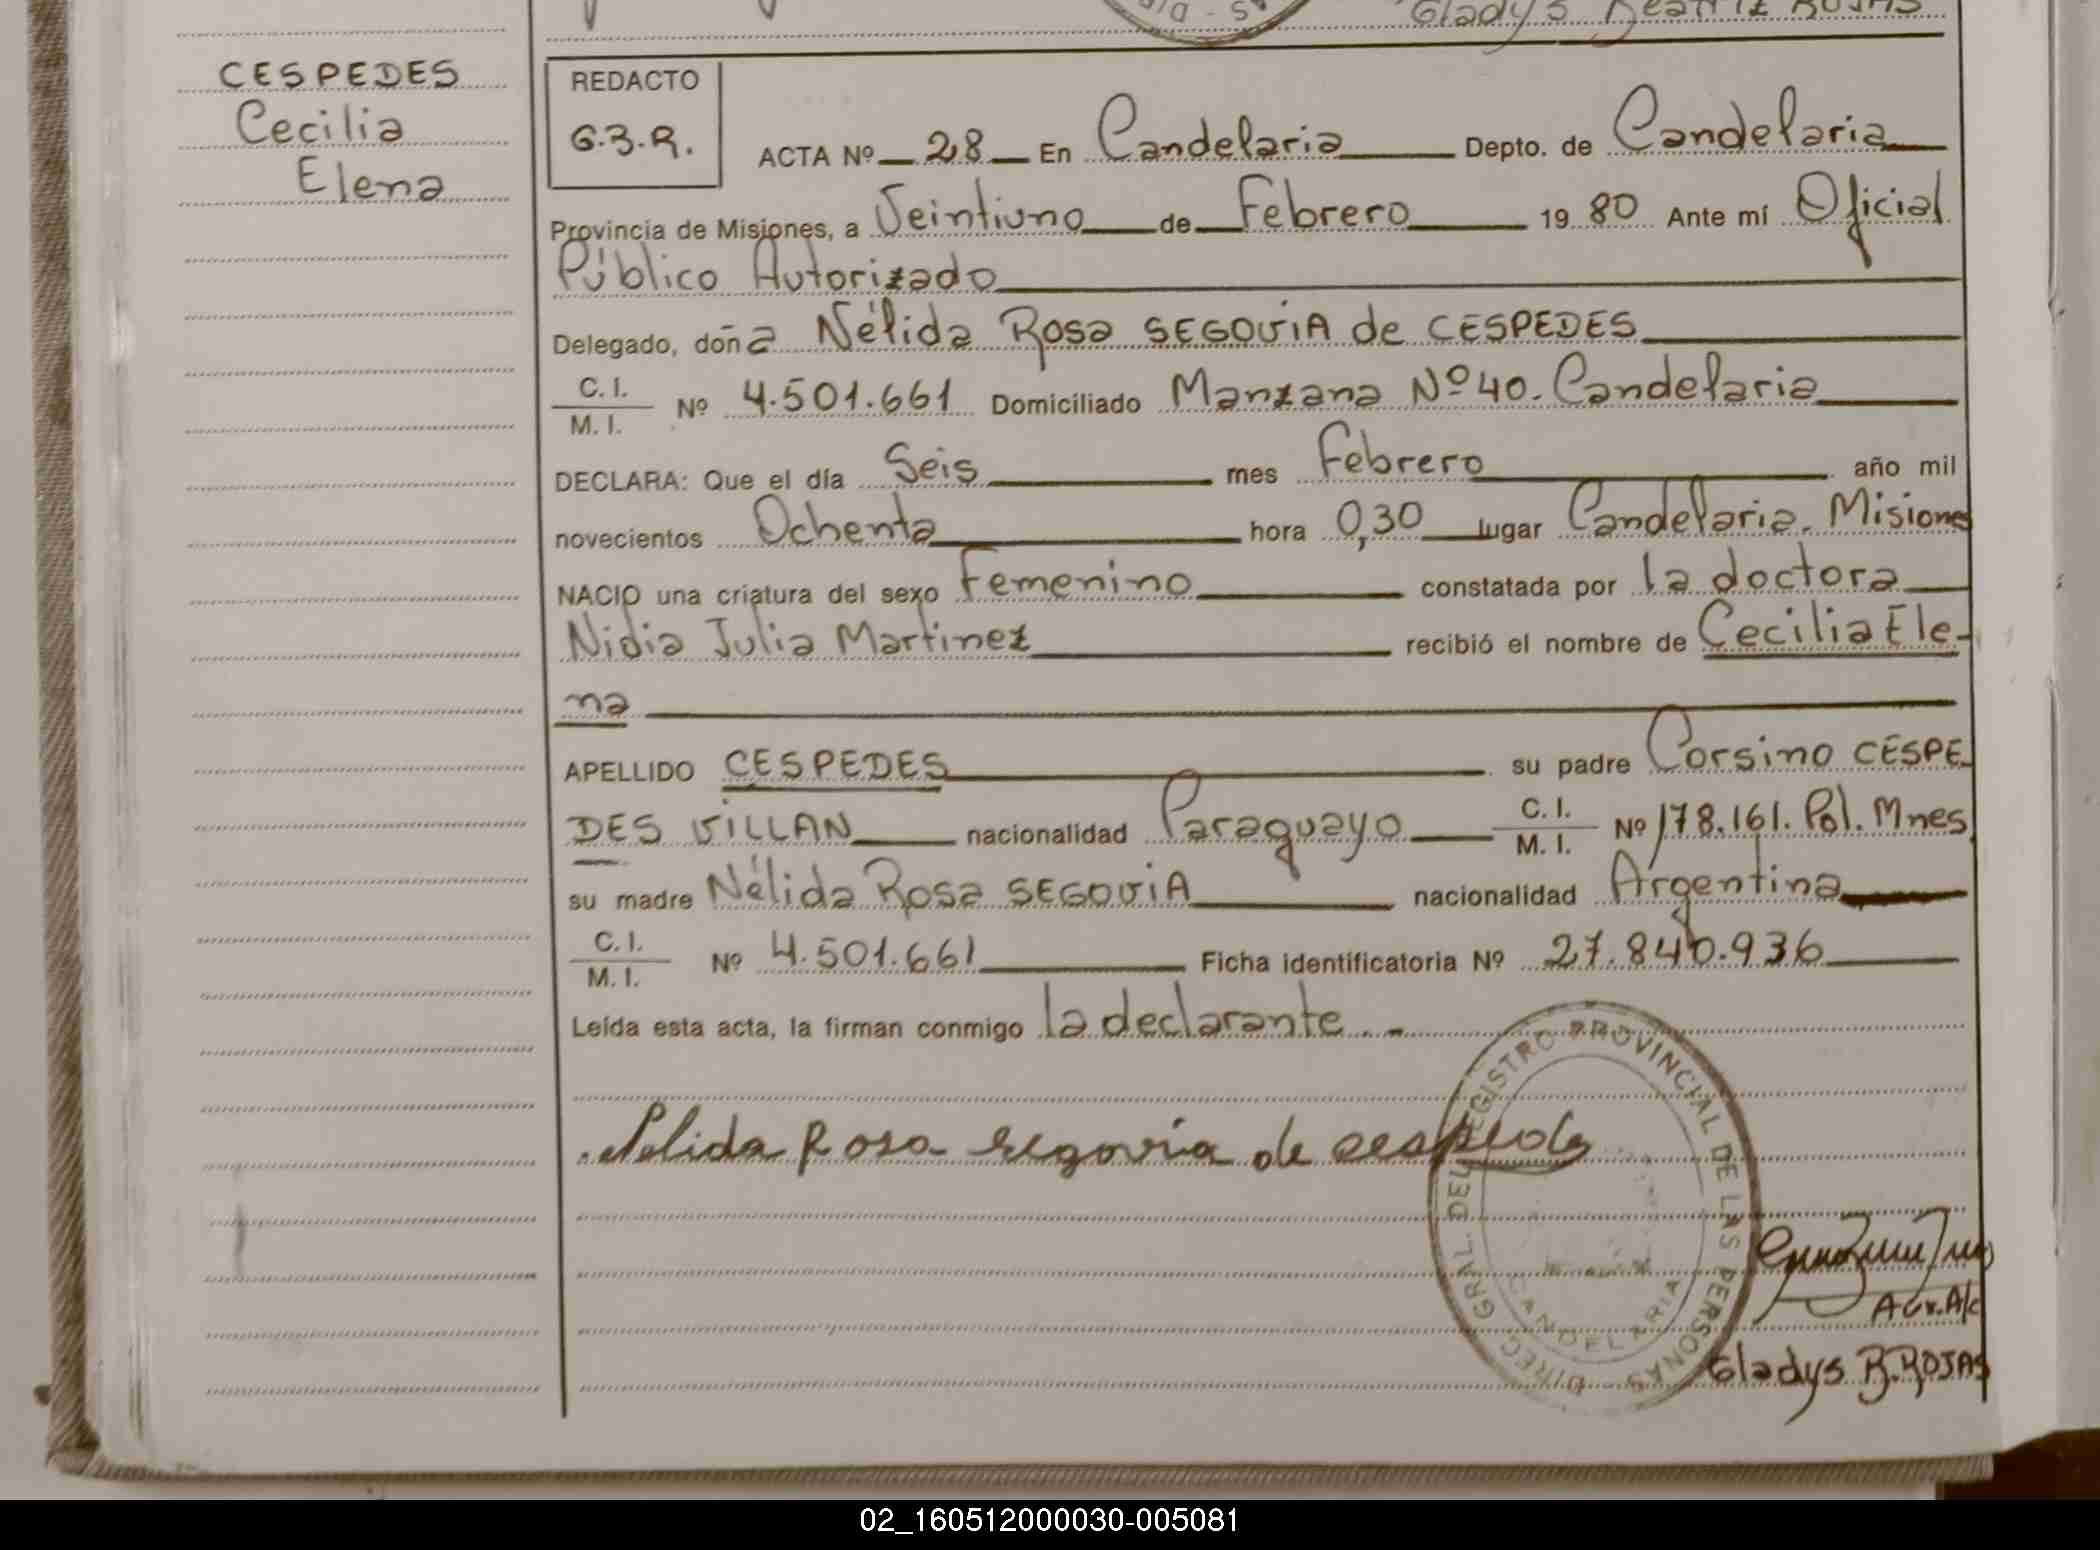 Gladys Beatriz ROJAS
CESPEDES
Cecilia
Elena
REDACTO
G.B.R.
ACTA Nº 28 En Candelaria Depto. de Candelaria
Provincia de Misiones, a Veintiuno de Febrero 1980 Ante mí Oficial
Público Autorizado
Delegado, doña Nélida Rosa SEGOVIA de CESPEDES
C. I.
M. I.
Nº 4.501.661 Domiciliado Manzana Nº 40. Candelaria
DECLARA: Que el día Seis mes Febrero año mil
novecientos Ochenta hora 0,30 lugar Candelaria. Misiones
NACIO una criatura del sexo Femenino constatada por la doctora
Nidia Julia Martinez recibió el nombre de Cecilia Ele-
na
APELLIDO CESPEDES su padre Corsino CESPE-
DES VILLAN nacionalidad Paraguayo C. I. M. I. Nº 178.161. Pol. Mnes
su madre Nélida Rosa SEGOVIA nacionalidad Argentina
C. I.
M. I.
Nº 4.501.661 Ficha identificatoria Nº 27.840.936
Leída esta acta, la firman conmigo la declarante.-
Nelida Rosa Segovia de Cespedes
DIREC. GRAL. DEL REGISTRO PROVINCIAL DE LAS PERSONAS
CANDELARIA
Aux. A/c
Gladys B. ROJAS
02_160512000030-005081